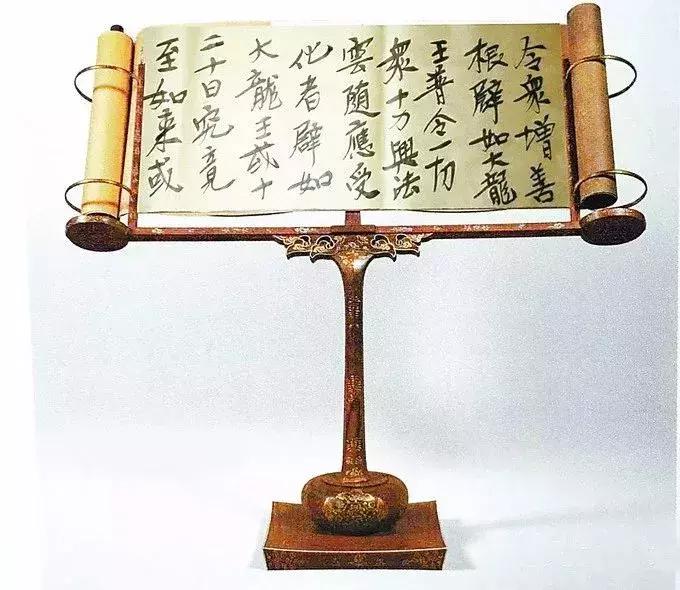 令衆增善
根譬如大龍
王普令一切
衆十力興法
雲随應受
化者譬如
大龍王或十
二十日究竟
至如来或